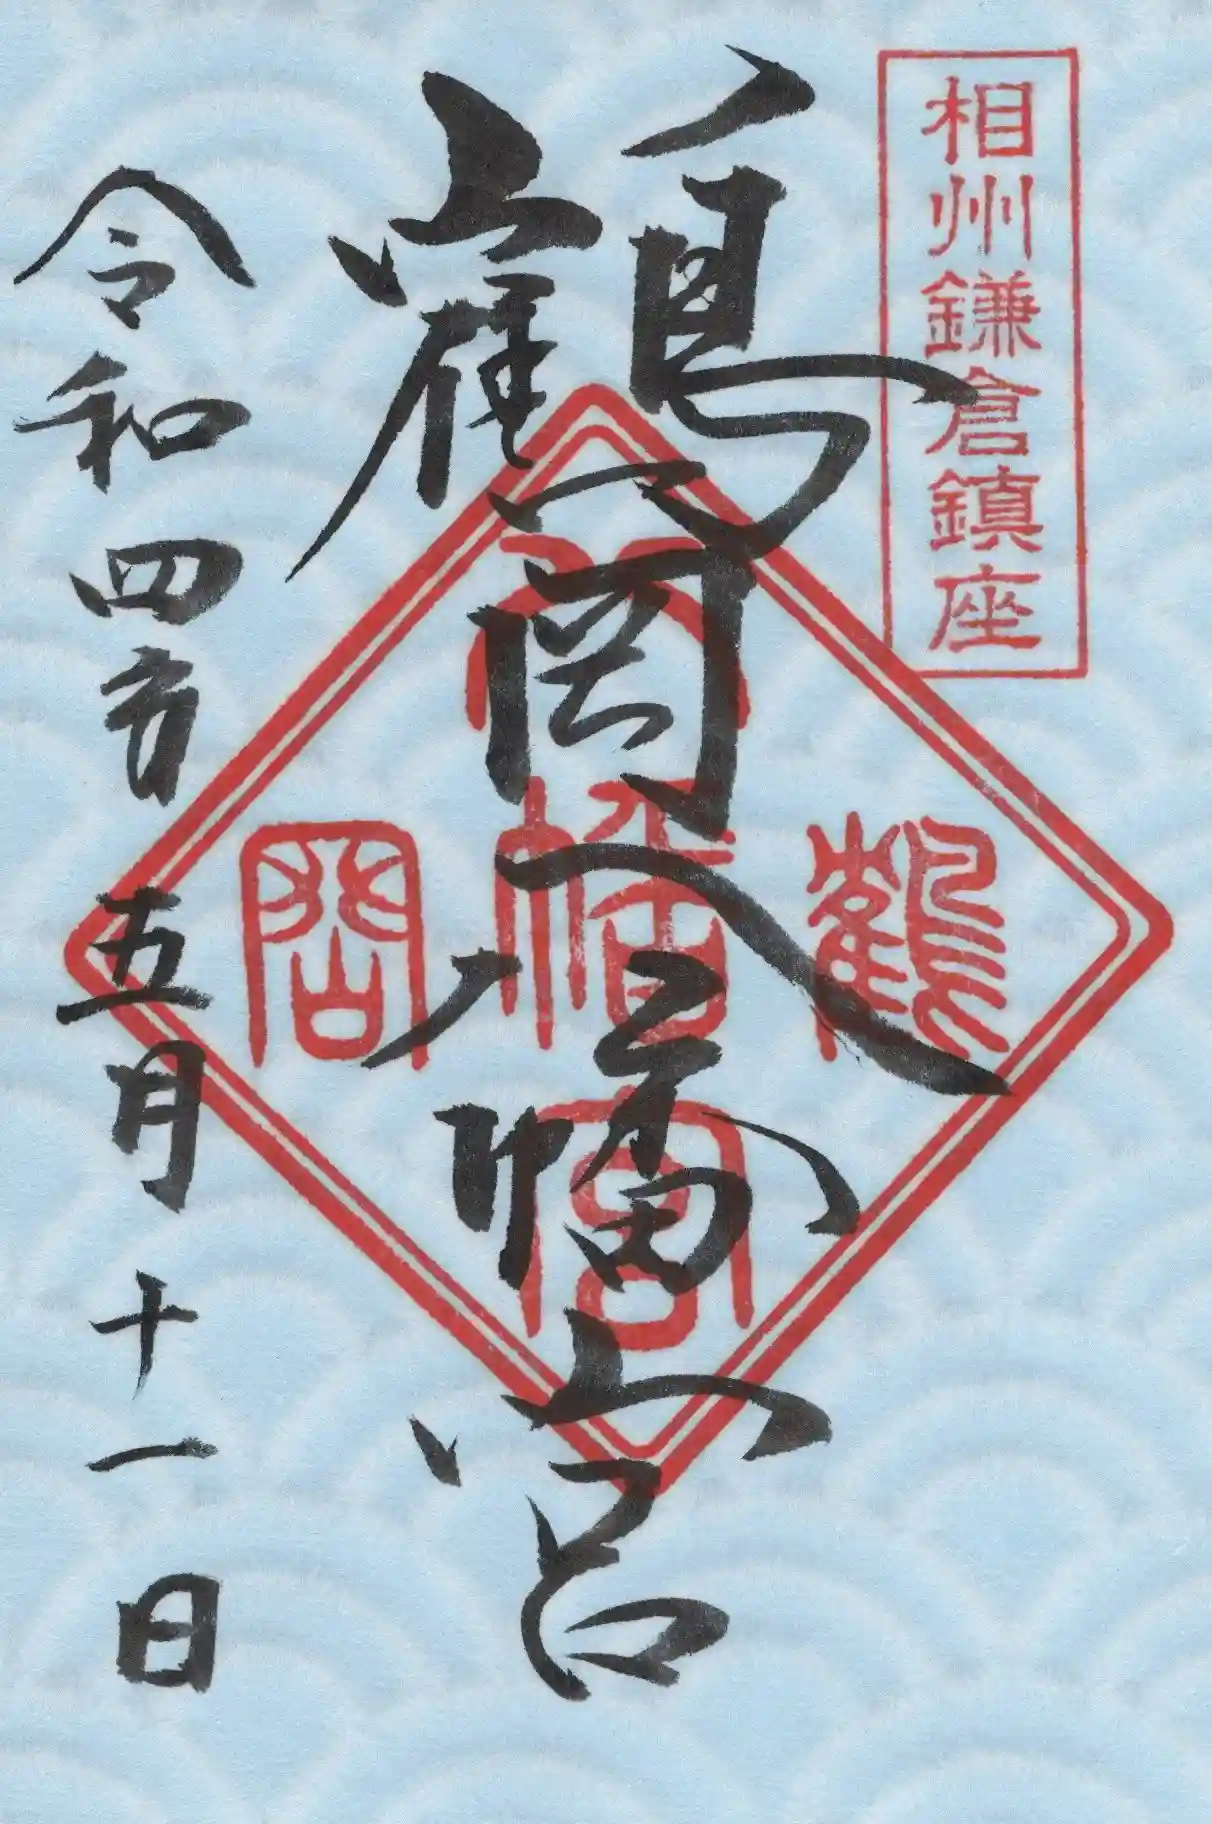 相州鎌倉鎮座
鶴岡八幡宮
八
鶴幡岡
宮
令和四年五月十一日